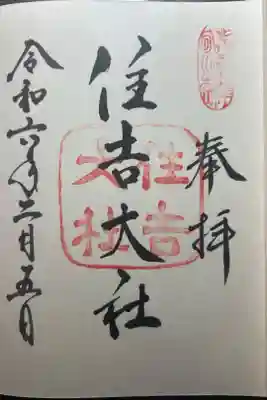 奉拝
住吉大社
住吉大社
令和六年二月五日